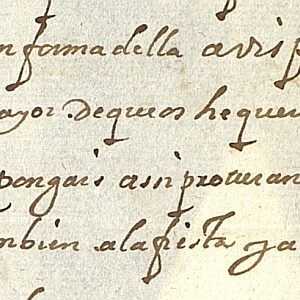 n forma della avis p
ayor. De que os he quer
pongais assi procuran
mbien a la fiesta ya